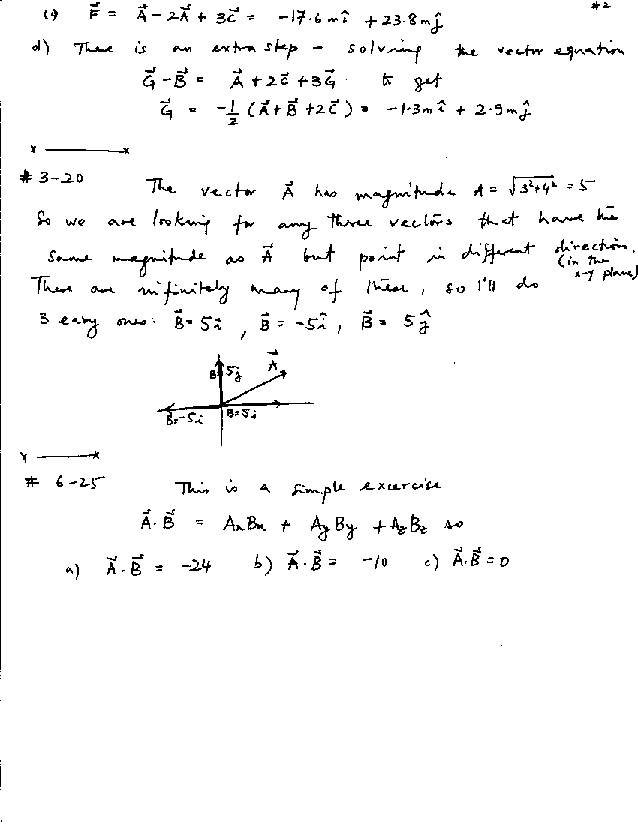 #2
(c) F⃗ = A⃗ - 2A⃗ + 3C⃗ = -17.6 m î + 23.8 m ĵ
d) There is an extra step - solving the vector equation
G⃗ - B⃗ = A⃗ + 2C⃗ + 3G⃗ to get
G⃗ = -1/2 (A⃗ + B⃗ + 2C⃗) = -1.3 m î + 2.9 m ĵ
x x
# 3-20
The vector A⃗ has magnitude A = √(3²+4²) = 5
So we are looking for any three vectors that have the
same magnitude as A⃗ but point in different direction.
(in the x-y plane)
There are infinitely many of these, so I'll do
3 easy ones: B⃗ = 5î, B⃗ = -5î, B⃗ = 5ĵ
B 5ĵ A⃗
B=-5i B=5i
x x
# 6-25
This is a simple excercise
A⃗·B⃗ = AxBx + AyBy + AzBz so
a) A⃗·B⃗ = -24 b) A⃗·B⃗ = -10 c) A⃗·B⃗ = 0